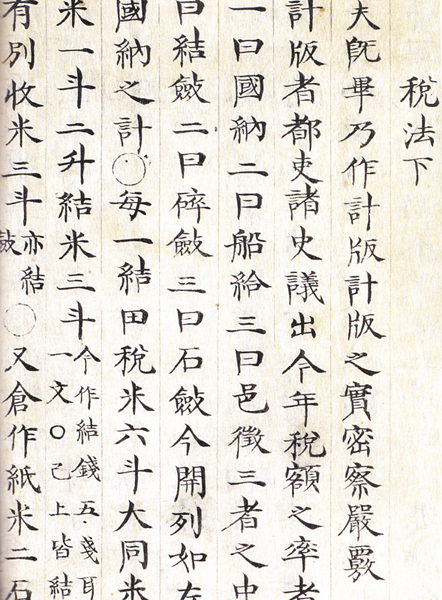 稅法下
夫旣畢乃作計版計版之實密察嚴覈
計版者都吏諸史議出今年稅額之率者
一曰國納二曰船給三曰邑徵三者之中
曰結斂二曰碎斂三曰石斂今開列如左
國納之計○每一結田稅米六斗大同米
米一斗二升結米三斗今作結錢五戔耳
一文○已上皆結
有別收米三斗亦結
斂○又倉作紙米二石